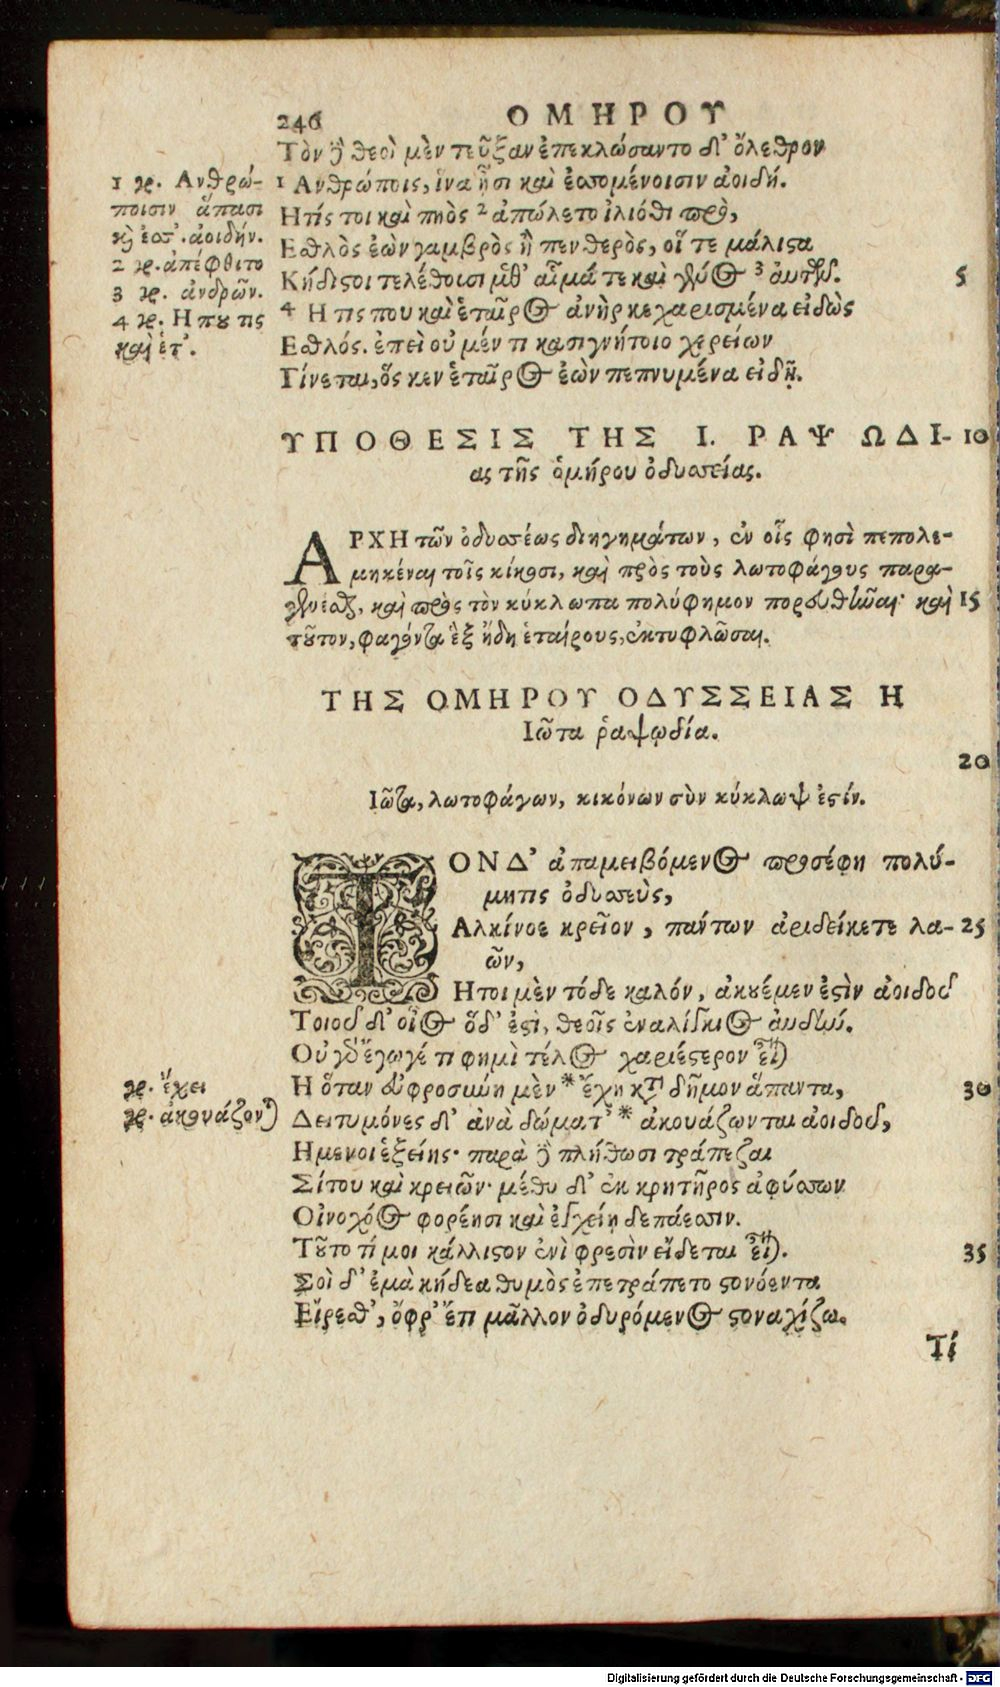 246 ΟΜΗΡΟΥ
Τὸν δὲ θεοὶ μὲν τεῦξαν ἐπεκλώσαντο δ' ὄλεθρον
1 Ανθρώποις, ἵνα ᾖσι καὶ ἐσσομένοισιν ἀοιδή.
Ητίς τοι καὶ πηὸς 2 ἀπώλετο ἰλιόθι πρὸ,
Εσθλὸς ἐὼν γαμβρὸς ἢ πενθερὸς, οἵ τε μάλιστα
Κήδιστοι τελέθουσι μεθ' αἷμά τε καὶ γένος 3 αὐτῶν. 5
4 Η τις που καὶ ἑταῖρος ἀνὴρ κεχαρισμένα εἰδὼς
Εσθλός. ἐπεὶ οὐ μέν τι κασιγνήτοιο χερείων
Γίνεται, ὅς κεν ἑταῖρος ἐὼν πεπνυμένα εἰδῇ.
1 γρ. Ανθρώ-
ποισιν ἅπασι
καὶ ἐσσ'. ἀοιδήν.
2 γρ. ἀπέφθιτο
3 γρ. ἀνδρῶν.
4 γρ. Η πού τις
καὶ ἑτ'.
ΥΠΟΘΕΣΙΣ ΤΗΣ Ι. ΡΑΨΩΔΙ- 10
ας τῆς ὁμήρου ὀδυσσείας.
ΑΡΧΗ τῶν ὀδυσσέως διηγημάτων, ἐν οἷς φησὶ πεπολε-
μηκέναι τοῖς κίκοσι, καὶ πρὸς τοὺς λωτοφάγους παρα-
γενέσθαι, καὶ πρὸς τὸν κύκλωπα πολύφημον πορευθῆναι· καὶ 15
τοῦτον, φαγόντα ἓξ ἤδη ἑταίρους, ἐκτυφλῶσαι.
ΤΗΣ ΟΜΗΡΟΥ ΟΔΥΣΣΕΙΑΣ Η
Ιῶτα ῥαψῳδία.
20
Ιῶτα, λωτοφάγων, κικόνων σὺν κύκλωψ ἐστίν.
ΤΟΝ Δ' ἀπαμειβόμενος προσέφη πολύ-
μητις ὀδυσσεὺς,
Αλκίνοε κρεῖον, πάντων ἀριδείκετε λα- 25
ῶν,
Ητοι μὲν τόδε καλόν, ἀκουέμεν ἐστὶν ἀοιδοῦ
Τοιοῦδ' οἷος ὅδ' ἐστὶ, θεοῖς ἐναλίγκιος αὐδήν.
Οὐ γὰρ ἔγωγέ τι φημὶ τέλος χαριέστερον εἶναι
Η ὅταν εὐφροσύνη μὲν * ἔχῃ κατὰ δῆμον ἅπαντα, 30
Δαιτυμόνες δ' ἀνὰ δώματ' * ἀκουάζωνται ἀοιδοῦ,
Ημενοι ἑξείης· παρὰ δὲ πλήθωσι τράπεζαι
Σίτου καὶ κρειῶν· μέθυ δ' ἐκ κρητῆρος ἀφύσσων
Οἰνοχόος φορέησι καὶ ἐγχείη δεπάεσσιν.
Τοῦτο τί μοι κάλλιστον ἐνὶ φρεσὶν εἴδεται εἶναι. 35
Σοὶ δ' ἐμὰ κήδεα θυμὸς ἐπετράπετο στονόεντα
Εἴρεσθ', ὄφρ' ἔτι μᾶλλον ὀδυρόμενος στοναχίζω.
γρ. ἔχει
γρ. ἀκουάζονται
Τί
Digitalisierung gefördert durch die Deutsche Forschungsgemeinschaft - DFG